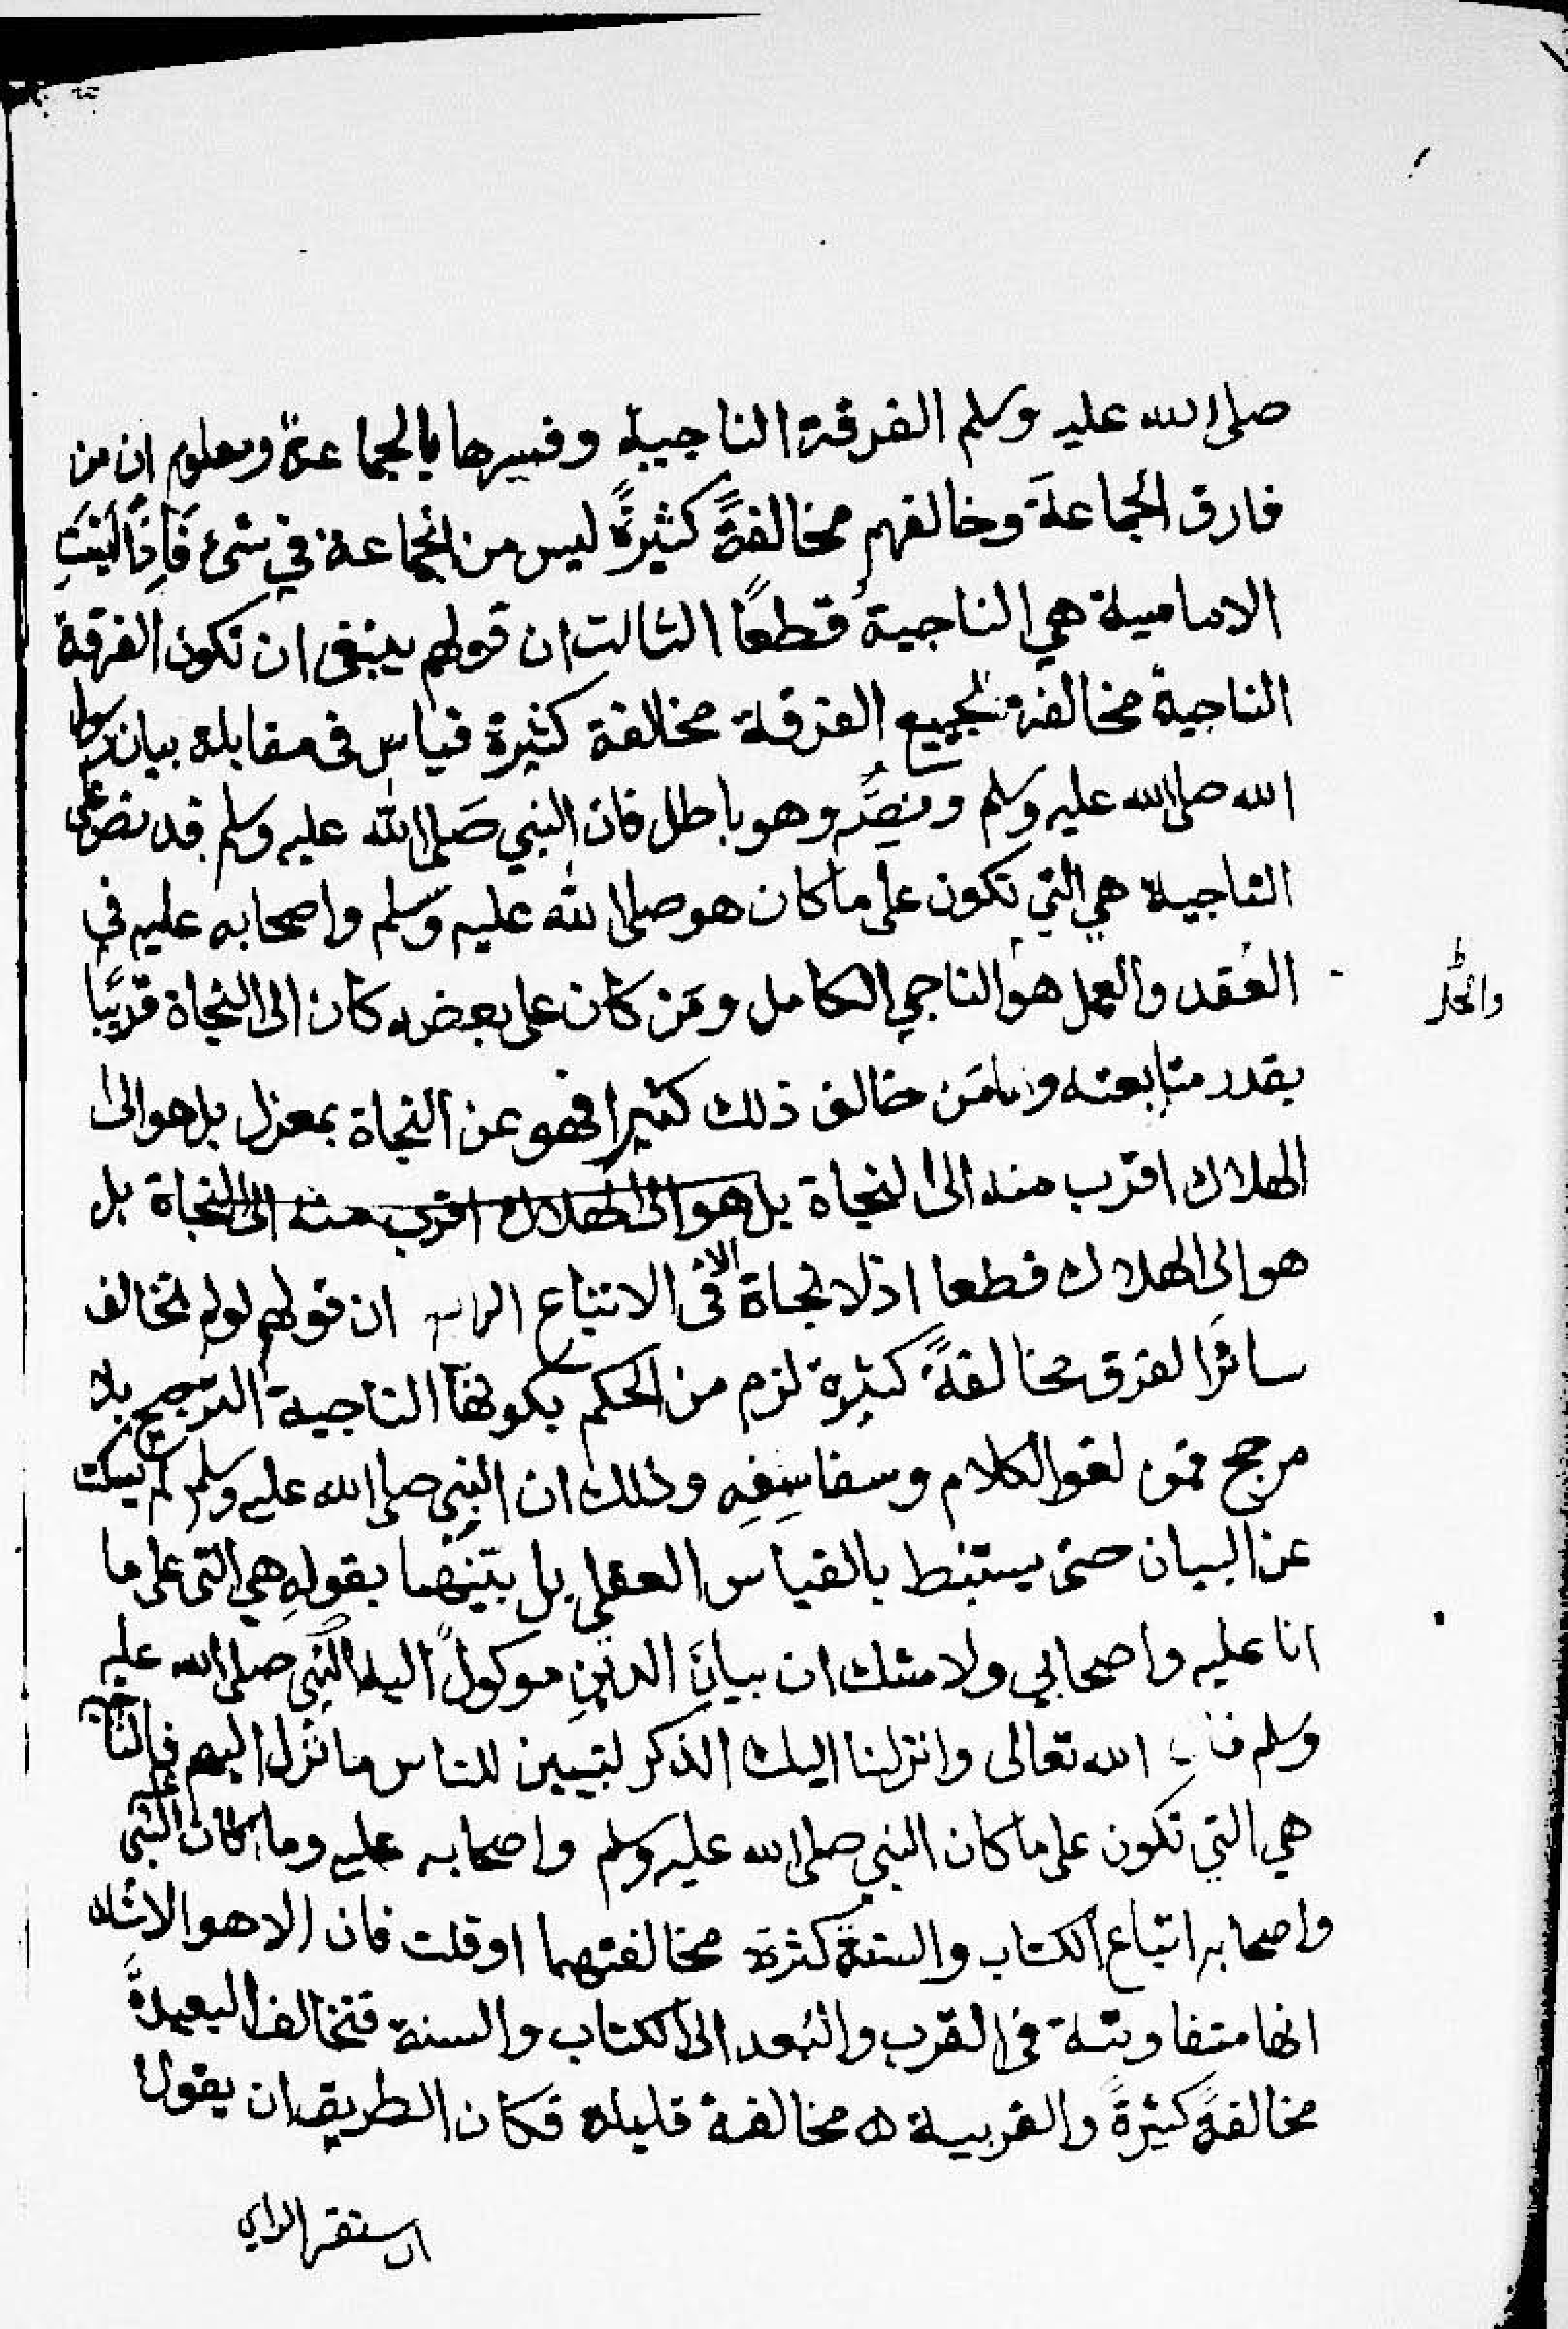 صلى الله عليه وسلم الفرقة الناجية وفسرها بالجماعة ومعلوم ان من
فارق الجماعةَ وخالفهم مخالفةً كثيرةً ليس من الجماعة في شئ فَاِذًا ليست
الامامية هي الناجيةُ قطعًا الثالث ان قولهم ينبغى ان تكون الفرقة
الناجية مخالفة لجميع الفرقة مخالفة كثيرة قياس فى مقابلة بيان رسول
الله صلى الله عليه وسلم ونصّه وهو باطل فان النبي صَلى الله عليه وسلم قد نص على
الناجية هي التي تكون على ما كان هو صلى الله عليه وسلم واصحابه عليه في
العَقد والعمل هو الناجي الكامل ومَن كان على بعضه كان الى النجاة قريبًا
بقدر متابعته واما مَن خالف ذلك كثيرا فهو عن النجاة بمعزل بل هو الى
الهلاك اقرب منه الى النجاة بل هو الى الهلاك اقرب منه الى النجاة بل
هو اِلى الهلاك قطعا اذ لا نجاة الا فى الاتباع الرابع ان قولهم لو لم تخالف
سائرَ الفرق مخالفةً كثيرة لزم من الحكم بكونها الناجية الترجيح بلا
مرجح فمن لغو الكلام وسفاسِفِه وذلك ان النبي صلى الله عليه وسلم لم يسكت
عن البيان حتى يستنبط بالقياس العقلي بل بيّنهما بقولهِ هي التى على ما
انا عليه واصحابي ولا شك ان بيانَ الدينِ موكولٌ اليه النبي صلى الله عليه
وسلم قال الله تعالى وانزلنا اليك الذكر لتبيين للناس ما نزل اليهم فالناجية
هي التي تكون على ما كان النبي صلى الله عليه وسلم واصحابه عليه وما كان النبي
واصحابه اتباع الكتاب والسنة كثرة مخالفتهما او قلت فان الاهوا لا شك
انها متفاوتة فى القرب والبُعد الى الكتاب والسنة فتخالف البعيدةُ
مخالفةً كثيرةً والقريبة مخالفة قليلة فكان الطريق ان يقول
ان ستقر الراي